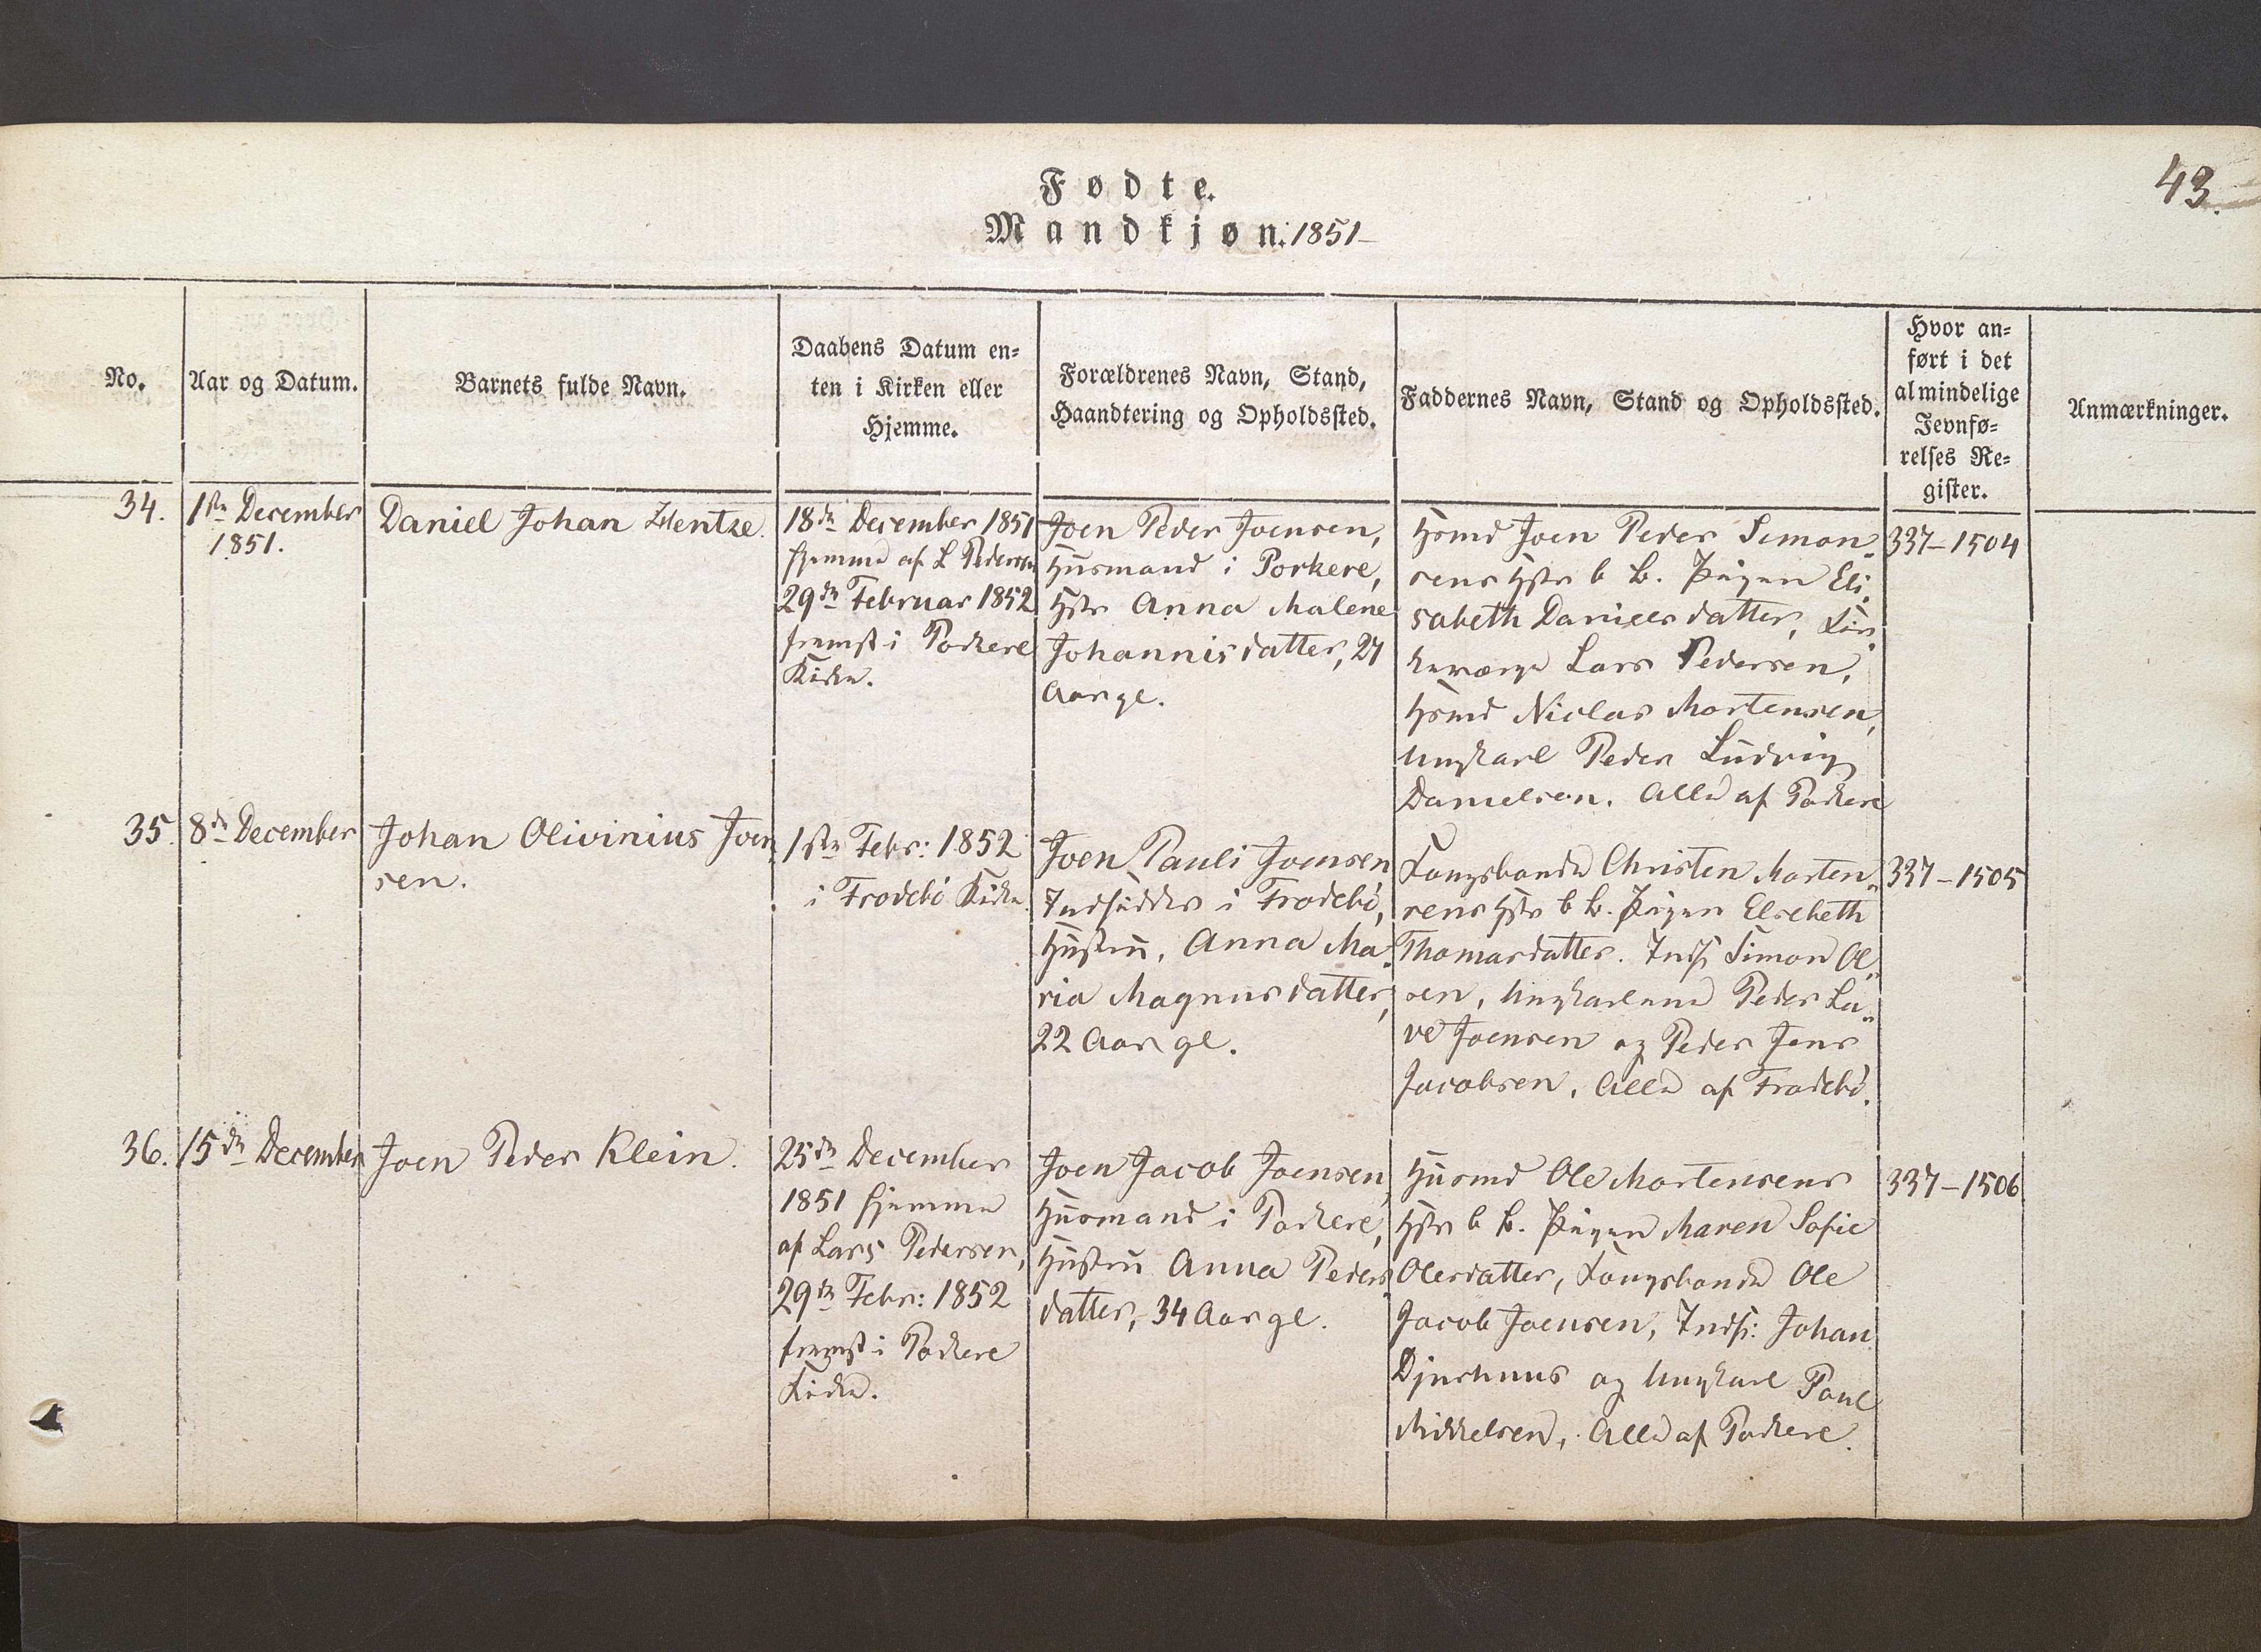 43.
Fødte.
Mandkjøn. 1851
No.
Aar og Datum.
Barnets fulde Navn.
Daabens Datum en=
ten i Kirken eller
Hjemme.
Forældrenes Navn, Stand,
Haandtering og Opholdssted.
Faddernes Navn, Stand og Opholdssted.
Hvor an=
ført i det
almindelige
Jevnfø=
relses Re=
gister.
Anmærkninger.
34.
1ste December
1851.
Daniel Johan Hentze.
18de December 1851
hjemme af L Pedersen
29de Februar 1852
fremst i Porkere
Kirke.
Joen Peder Joensen,
Husmand i Porkere,
Hstr Anna Malene
Johannisdatter, 27
Aar gl.
Hsmd Joen Peder Simon
sens Hstr b b. Pigen Eli
sabeth Danielsdatter, Kir
keværge Lars Pedersen,
Hsmd Niclas Mortensen,
Ungkarl Peder Ludvig
Danielsen. Alle af Porkere
337–1504
35.
8de December
Johan Olivinius Joen
sen.
1ste Febr: 1852
i Frodebö Kirke.
Joen Pauli Joensen
Indsidder i Frodebö,
Hustru, Anna Ma
ria Magnusdatter,
22 Aar gl.
Kongsbonde Christen Morten
sens Hstr b b. Pigen Elsebeth
Thomasdatter. Inds Simon Ol
sen, Ungkarlene Peder La
ve Joensen og Peder Jens
Jacobsen. Alle af Frodebö.
337–1505
36.
15de December
Joen Peder Klein.
25de December
1851 hjemme
af Lars Pedersen,
29de Febr: 1852
fremst i Porkere
Kirke.
Joen Jacob Joensen,
Husmand i Porkere,
Hustru Anna Peders
datter, 34 Aar gl.
Husmd Ole Mortensens
Hstr b b. Pigen Maren Sofie
Olesdatter, Kongsbonde Ole
Jacob Joensen, Inds: Johan
Djurhuus og Ungkarl Poul
Mikkelsen, Alle af Porkere.
337–1506